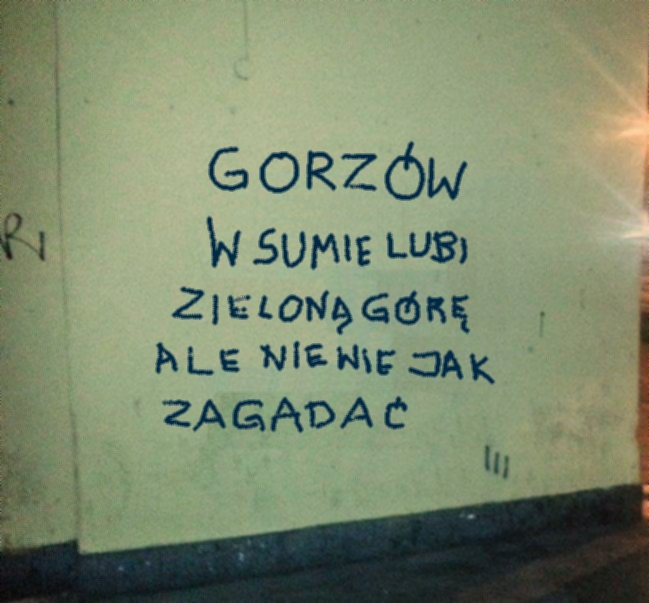 RI
GORZÓW
W SUMIE LUBI
ZIELONĄ GÓRĘ
ALE NIE WIE JAK
ZAGADAĆ